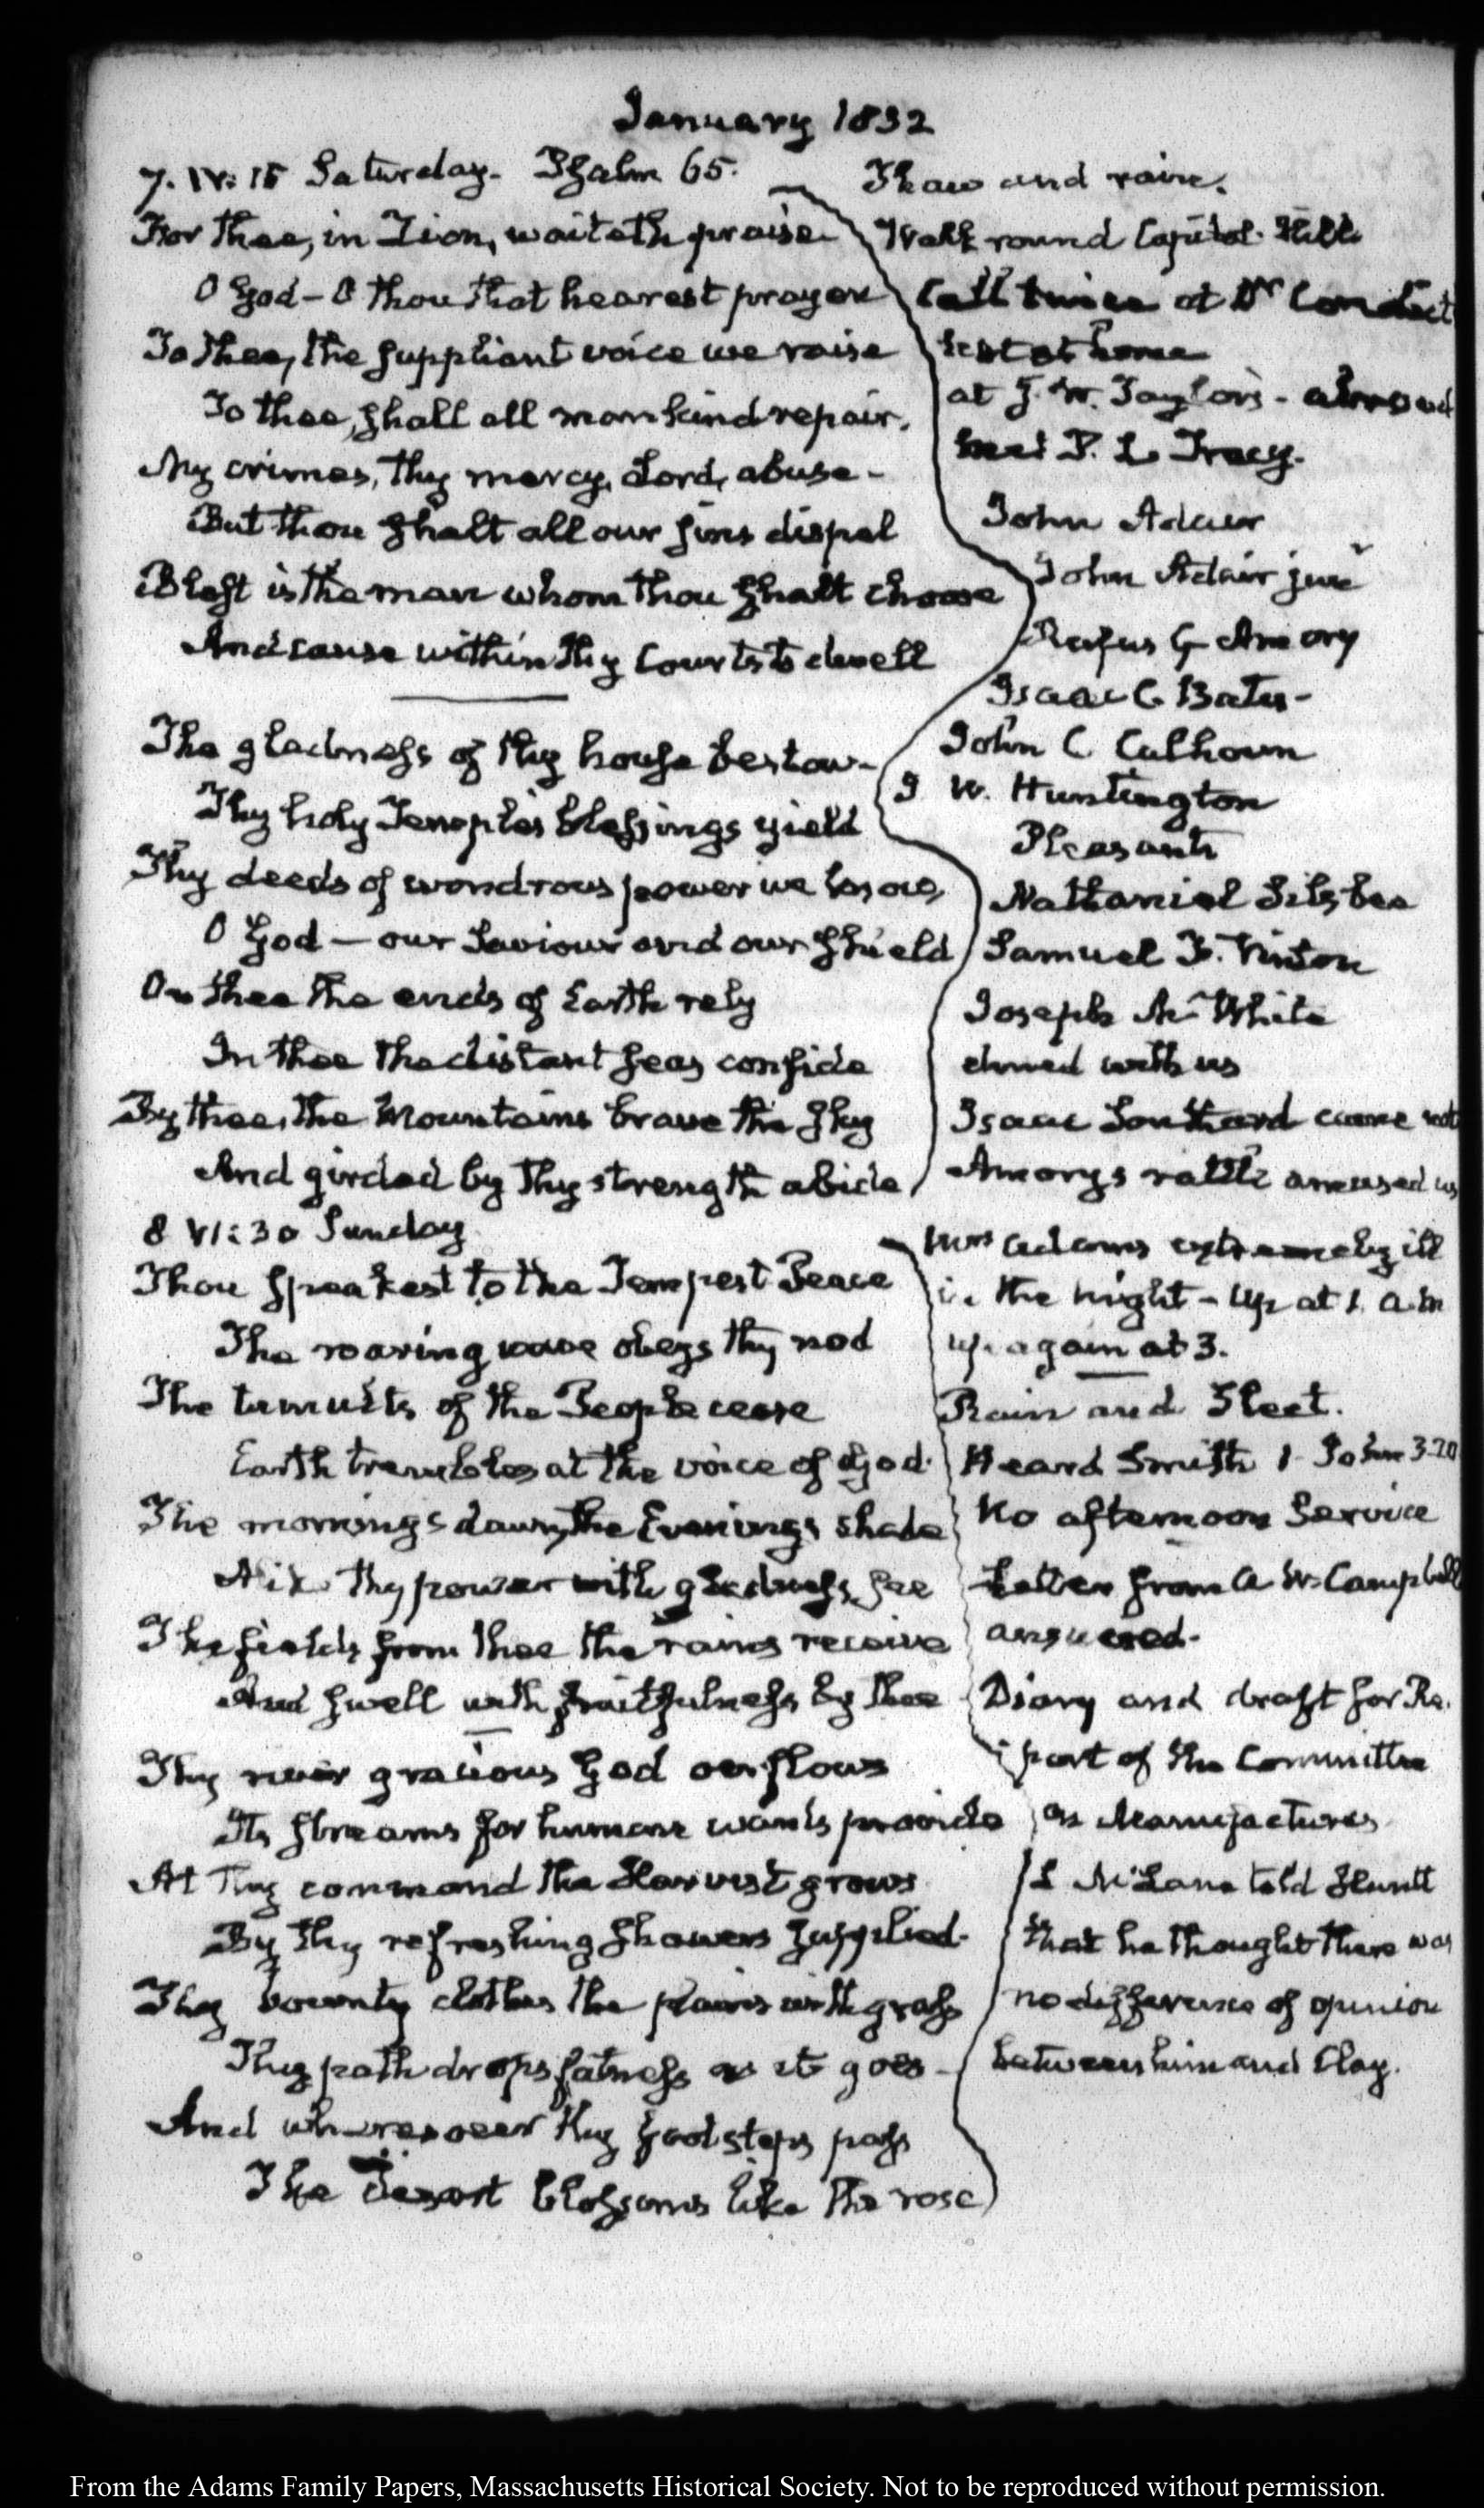 January 1832
7. IV: 15 Saturday. Psalm 65.
For thee, in Zion, waiteth praise
O God – O thou that hearest prayer
To thee, the suppliant voice we raise
To thee, shall all mankind repair.
My crimes, thy mercy, Lord, abuse –
But thou shalt all our sins dispel
Blest is the man whom thou shalt choose
And cause within thy Courts to dwell
The gladness of thy house bestow –
Thy holy Temple's blessings yield
Thy deeds of wondrous power we know,
O God – our Saviour and our Shield
On thee the ends of Earth rely
In thee the distant seas confide
By thee, the Mountains brave the sky
And girded by thy strength abide
Thaw and rain.
Walk round Capitol Hill
Call twice at Dr Condict
at home
at J. W. Taylor's – abroad
P. L. Tracy.
John Adair
John Adair junr
Rufus G Amory
Isaac C. Bates –
John C Calhoun
J W. Huntington
Pleasants
Nathaniel Silsbee
Samuel F. Vinton
Joseph M White
dined with us
Isaac Southard came not
Amory's rattle amused us
8 VI: 30 Sunday
Thou speakest to the Tempest Peace
The roaring wave obeys thy nod
The tumults of the People cease
Earth trembles at the voice of God.
The morning's dawn, the Evening's shade
Alike thy power with gladness see
The fields from thee the rains receive
And swell with fruitfulness by thee
Thy river gracious God overflows
Its streams for human wants provide
At Thy command the Harvest grows
By thy refreshing showers supplied.
Thy bounty clothes the plains with grass
Thy path drops fatness as it goes –
And wheresoever thy footsteps pass
The Desert blossoms like the rose
Mrs Adams extremely ill
in the night – Up at 1. a.m
up again at 3.
Rain and Sleet.
Heard Smith 1. John 3.20
No afternoon Service
Letter from A W Campbell
answered.
Diary and draft for Re.
port of the Committee
on Manufactures
L McLane told Huntt
that he thought there was
no difference of opinion
between him and Clay.
From the Adams Family Papers, Massachusetts Historical Society. Not to be reproduced without permission.